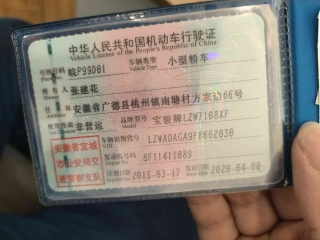 中华人民共和国机动车行驶证
Vehicle License of the People's Republic of China
号牌号码 皖P99D01 车辆类型 Vehicle Type 小型轿车
所有人 张建花
住址 安徽省广德县桃州镇南塘村方家边66号
使用性质 非营运 品牌型号 宝骏牌LZW7108XF
安徽省宣城市公安局交通警察支队
车辆识别代号 VIN LZWADAGA9F8602030
发动机号码 8F11411089
注册日期 2015-03-17 发证日期 2020-04-08